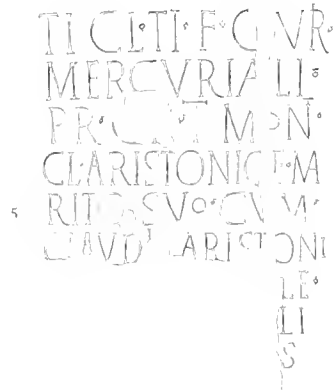 TI CL·TI·F·QVR·
MERCVRIALI
PR· M N·
CL·ARISTONICE·M
5 RITO·SVO·CVM·
CLAVD ARISTONI
LE·
LI
S